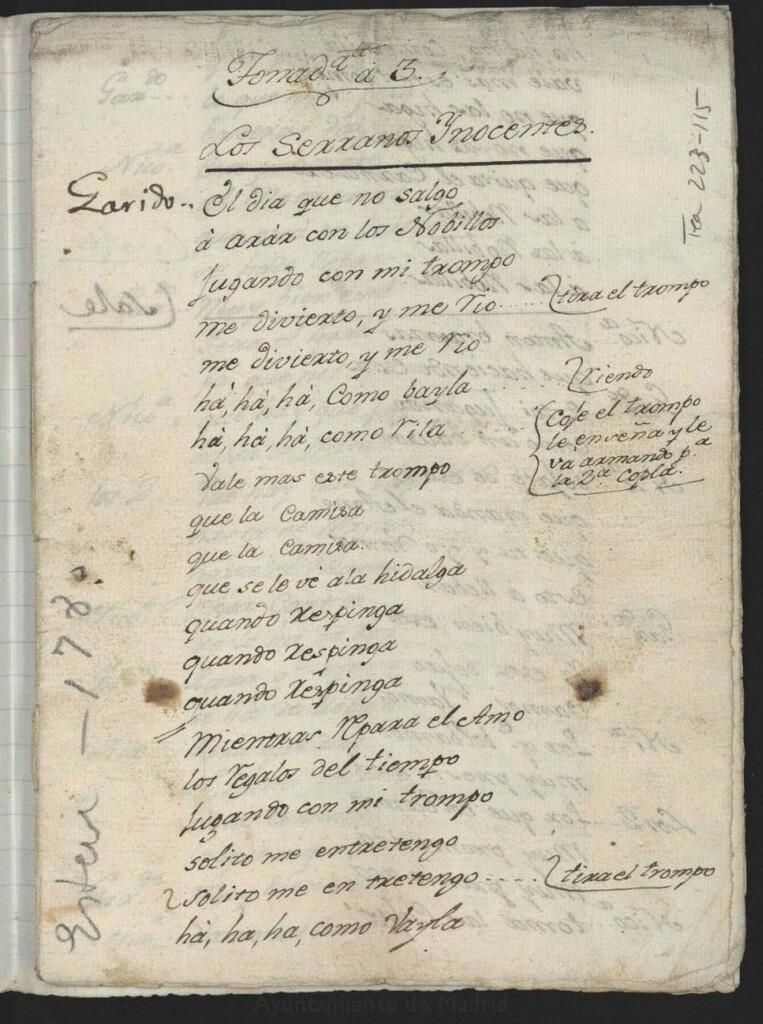 Tonad.lla á 3.
Los Serranos Ynocentes.
Garido..
El dia que no salgo
à aràr con los Nobillos
Jugando con mi trompo
me divierto, y me rio ..... tira el trompo
me divierto, y me rio
hà, hà, hà, Como bayla ..... riendo
hà, hà, hà, como rila ...
Coje el trompo
le enseña y le
vá armando p.a
la 2.a Copla.
Vale mas este trompo
que la Camisa
que la Camisa.
que se le vé ala hidalga
quando respinga
quando respinga
quando respinga
Mientras Rpara el Amo
los Regalos del tiempo
Jugando con mi trompo
solito me entretengo
solito me en tretengo ..... tira el trompo
hà, ha, ha, como Vayla
Tea 223-115
Esteve - 178
Ayuntamiento de Madrid